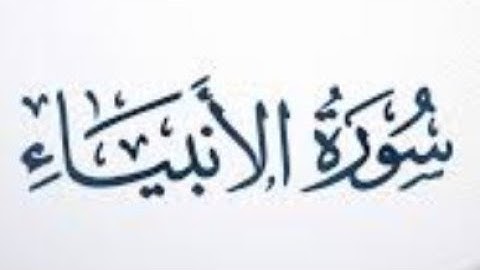 سُورَةُ الأَنبِيَاءِ